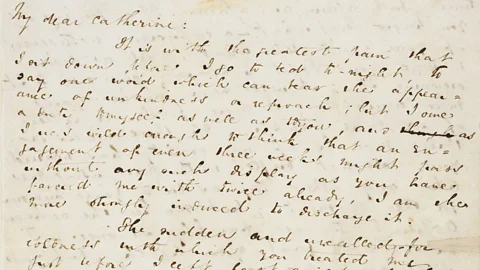 My dear Catherine:
It is with the greatest pain that
I sit down, before I go to bed to-night, to
say one word which can bear the appear=
ance of unkindness or reproach; but I owe
a duty to myself as well as to you, and as
I was wild enough to think that an en=
gagement of even three weeks might pass
without any such display as you have
favored me with twice already, I am the
more strongly induced to discharge it.
The sudden and uncalled-for
coldness with which you treated me
just before I left last